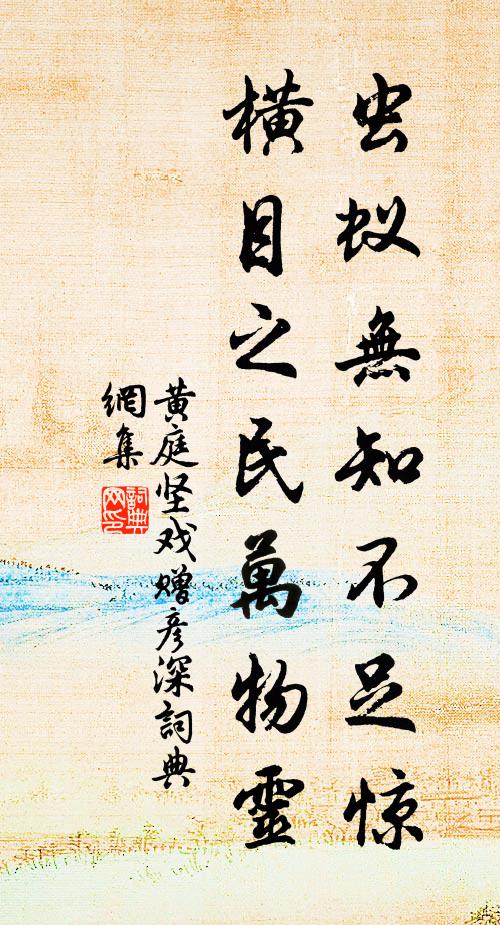 虫蚁無知不足惊
横目之民萬物靈
黄庭坚戏赠彦深詞典
網集
詞典
网印